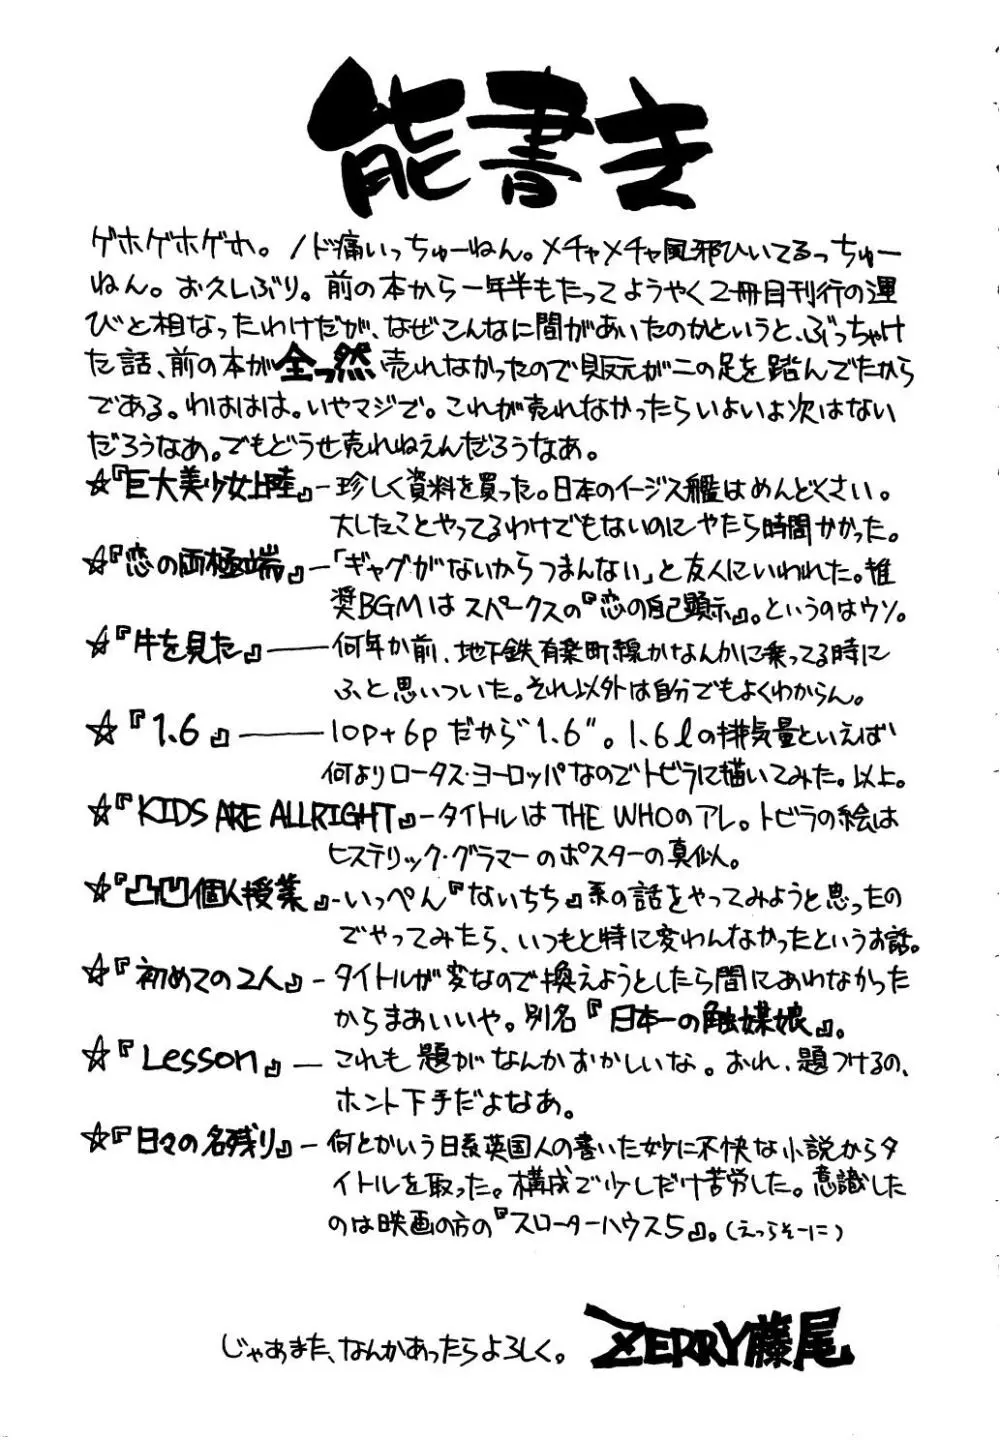 能書き
ゲホゲホゲホ。ノド痛いっちゅーねん。メチャメチャ風邪ひいてるっちゅー
ねん。お久しぶり。前の本から一年半もたってようやく2冊目刊行の運
びと相なったわけだが、なぜこんなに間があいたのかというと、ぶっちゃけ
た話、前の本が全っ然売れなかったので販元が二の足を踏んでたから
である。わははは。いやマジで。これが売れなかったらいよいよ次はない
だろうなあ。でもどうせ売れねえんだろうなあ。
☆『巨大美少女上陸』-珍しく資料を買った。日本のイージス艦はめんどくさい。
大したことやってるわけでもないのにやたら時間かかった。
☆『恋の両極端』-「ギャグがないからつまんない」と友人にいわれた。推
奨BGMはスパークスの『恋の自己顕示』。というのはウソ。
☆『牛を見た』――何年か前、地下鉄有楽町線かなんかに乗ってる時に
ふと思いついた。それ以外は自分でもよくわからん。
☆『1.6』――10p+6pだから"1.6"。1.6lの排気量といえば
何よりロータス・ヨーロッパなのでトビラに描いてみた。以上。
☆『KIDS ARE ALLRIGHT』-タイトルはTHE WHOのアレ。トビラの絵は
ヒステリック・グラマーのポスターの真似。
☆『凸凹個人授業』-いっぺん『ないちち』系の話をやってみようと思ったの
でやってみたら、いつもと特に変わんなかったというお話。
☆『初めての2人』-タイトルが変なので換えようとしたら間にあわなかった
からまあいいや。別名『日本一の触媒娘』。
☆『Lesson』―これも題がなんかおかしいな。おれ、題つけるの、
ホント下手だよなあ。
☆『日々の名残り』-何とかいう日系英国人の書いた妙に不快な小説からタ
イトルを取った。構成で少しだけ苦労した。意識した
のは映画の方の『スローターハウス5』。(えっらそーに)
じゃあまた、なんかあったらよろしく。ZERRY藤尾